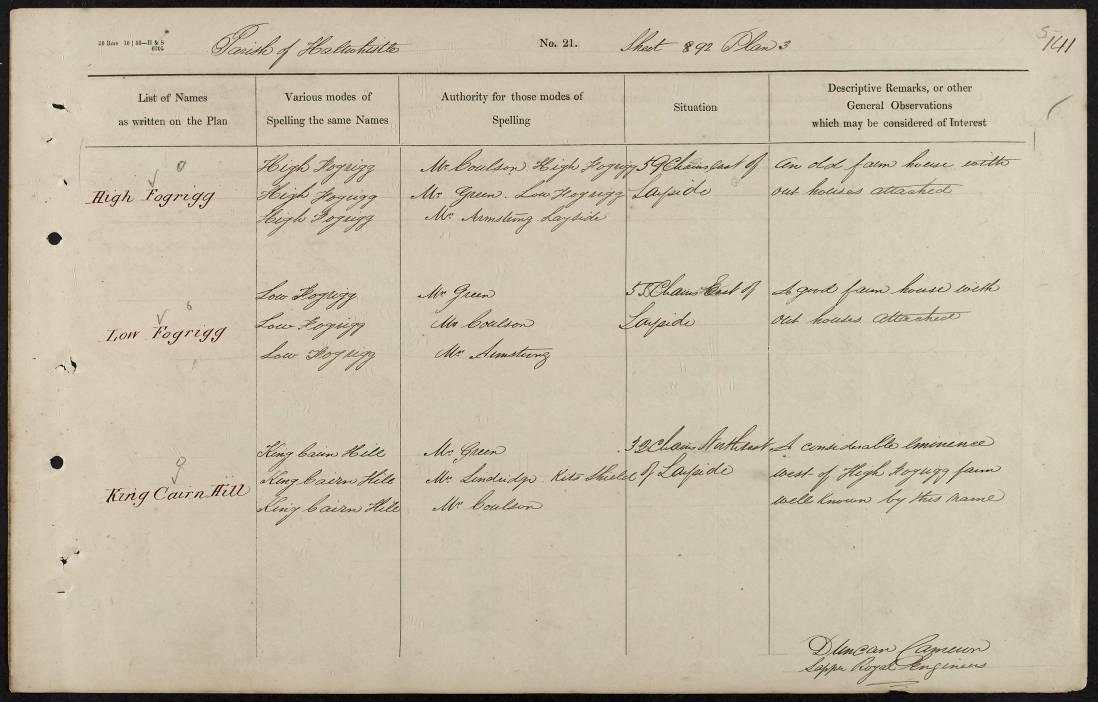 Parish of Haltwhistle No. 21. Sheet 892 Plan 3 141
List of Names
as written on the Plan
Various modes of
Spelling the same Names
Authority for those modes of
Spelling
Situation
Descriptive Remarks, or other
General Observations
which may be considered of Interest
High Fogrigg
High Fogrigg
High Fogrigg
High Fogrigg
Mr. Coulson High Fogrigg
Mr. Green Low Fogrigg
Mr. Armstrong Layside
59 Chains East of
Layside
An old farm house with
out houses attached
Low Fogrigg
Low Fogrigg
Low Fogrigg
Low Fogrigg
Mr Green
Mr Coulson
Mr. Armstrong
55 Chains East of
Layside
A good farm house with
out houses attached
King Cairn Hill
King Cairn Hill
King Cairn Hill
King Cairn Hill
Mr. Green
Mr. Kits Shield
Mr. Coulson
32 Chains
of Layside
A considerable Eminence
west of High Fogrigg farm
well known by this name
Duncan Cameron
Sapper Royal Engineers